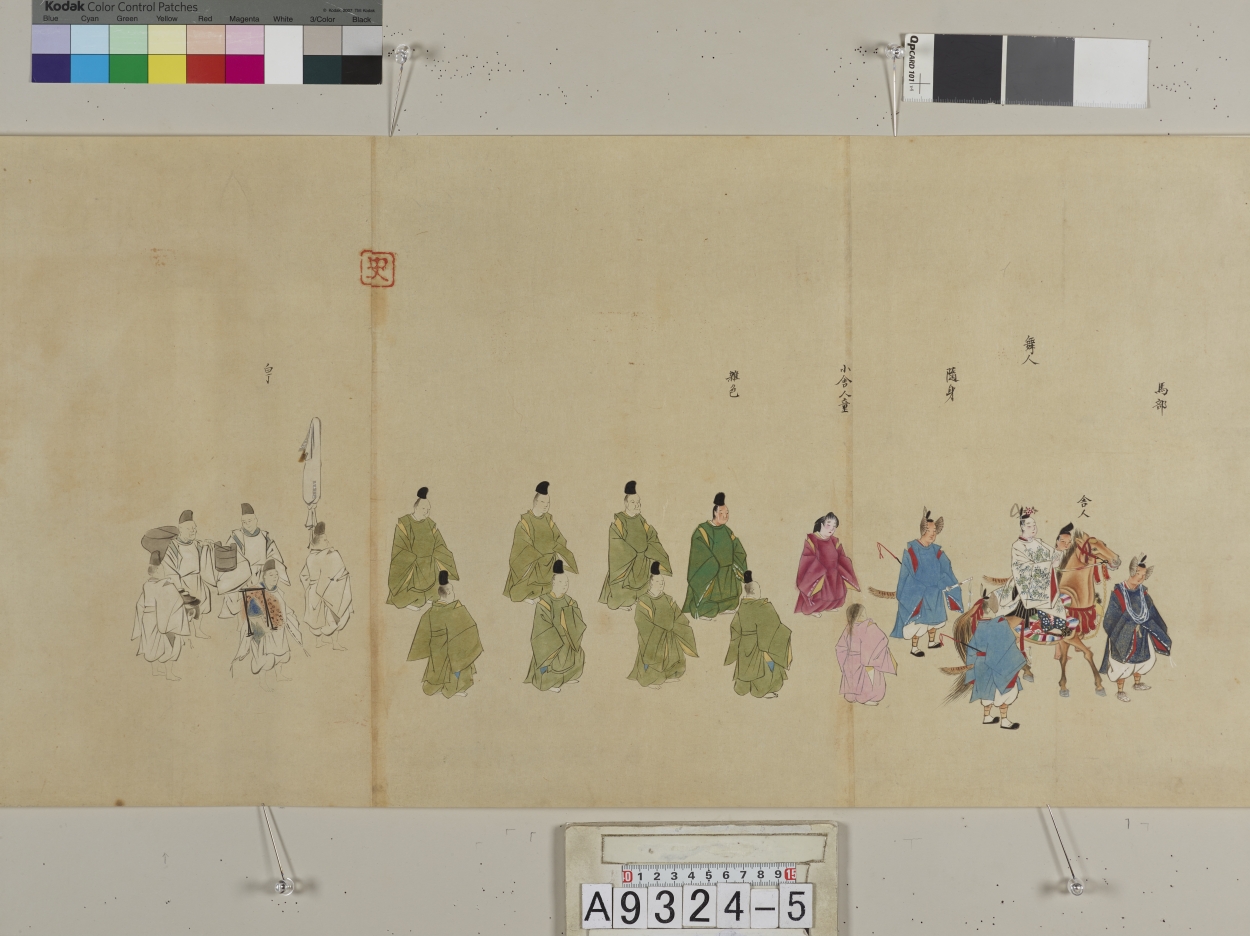 Kodak Color Control Patches
Blue Cyan Green Yellow Red Magenta White 3/Color Black
QPCARD 101
馬部
舞人
舎人
随身
小舎人童
雑色
史
白丁
0 1 2 3 4 5 6 7 8 9 15
A9324-5